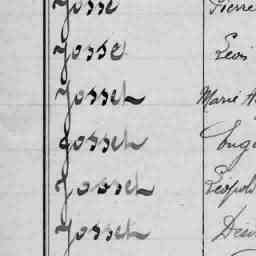 Josse Pierre
Josse Léon
Josset Marie A
Josset Eug
Josset Léopold
Josset Dési